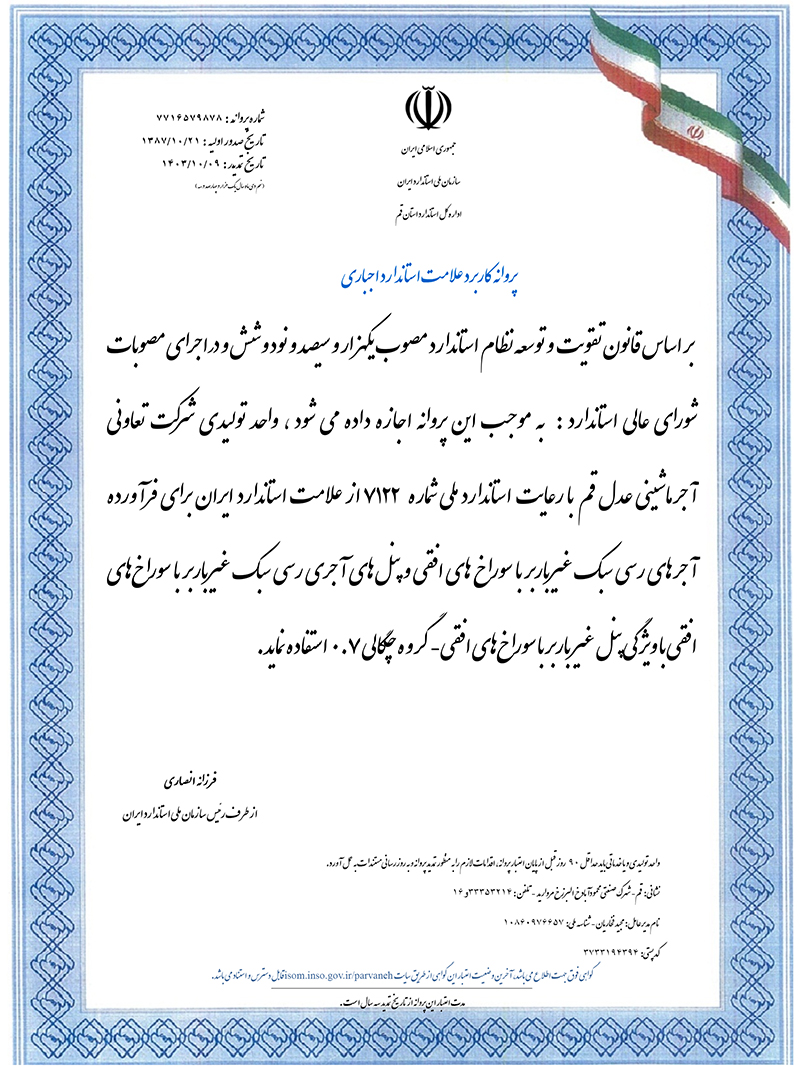 جمهوری اسلامی ایران
سازمان ملی استاندارد ایران
اداره کل استاندارد استان قم
شماره پروانه: ۷۷۱۶۵۷۹۸۷۸
تاریخ صدور اولیه: ۱۳۸۷/۱۰/۲۱
تاریخ تمدید: ۱۴۰۳/۱۰/۰۹
(نهم دی ماه سال یک هزار و چهارصد و سه)
پروانه کاربرد علامت استاندارد اجباری
بر اساس قانون تقویت و توسعه نظام استاندارد مصوب یکهزار و سیصد و نود و شش و در اجرای مصوبات
شورای عالی استاندارد : به موجب این پروانه اجازه داده می شود ، واحد تولیدی شرکت تعاونی
آجر ماشینی عدل قم با رعایت استاندارد ملی شماره ۷۱۲۲ از علامت استاندارد ایران برای فرآورده
آجرهای رسی سبک غیرباربر با سوراخ های افقی و پنل های آجری رسی سبک غیرباربر با سوراخ های
افقی با ویژگی پنل غیرباربر با سوراخ های افقی- گروه چگالی ۰.۷ استفاده نماید.
فرزانه انصاری
از طرف رئیس سازمان ملی استاندارد ایران
واحد تولیدی و یا خدماتی باید حداقل ۹۰ روز قبل از پایان اعتبار پروانه، اقدامات لازم را به منظور تمدید پروانه و به روز رسانی مستندات به عمل آورد.
نشانی: قم - شهرک صنعتی محمودآباد خ البرز خ مروارید - تلفن: ۳۳۳۵۳۲۱۴ و ۱۶
نام مدیرعامل: مجید غفاریان - شناسه ملی: ۱۰۸۶۰۹۷۶۶۵۷
کد پستی: ۳۷۳۳۱۹۴۳۹۴
گواهی فوق جهت اطلاع می باشد، آخرین وضعیت اعتبار این گواهی از طریق سایت isom.inso.gov.ir/parvaneh قابل دسترس و استناد می باشد.
مدت اعتبار این پروانه از تاریخ تمدید سه سال است.